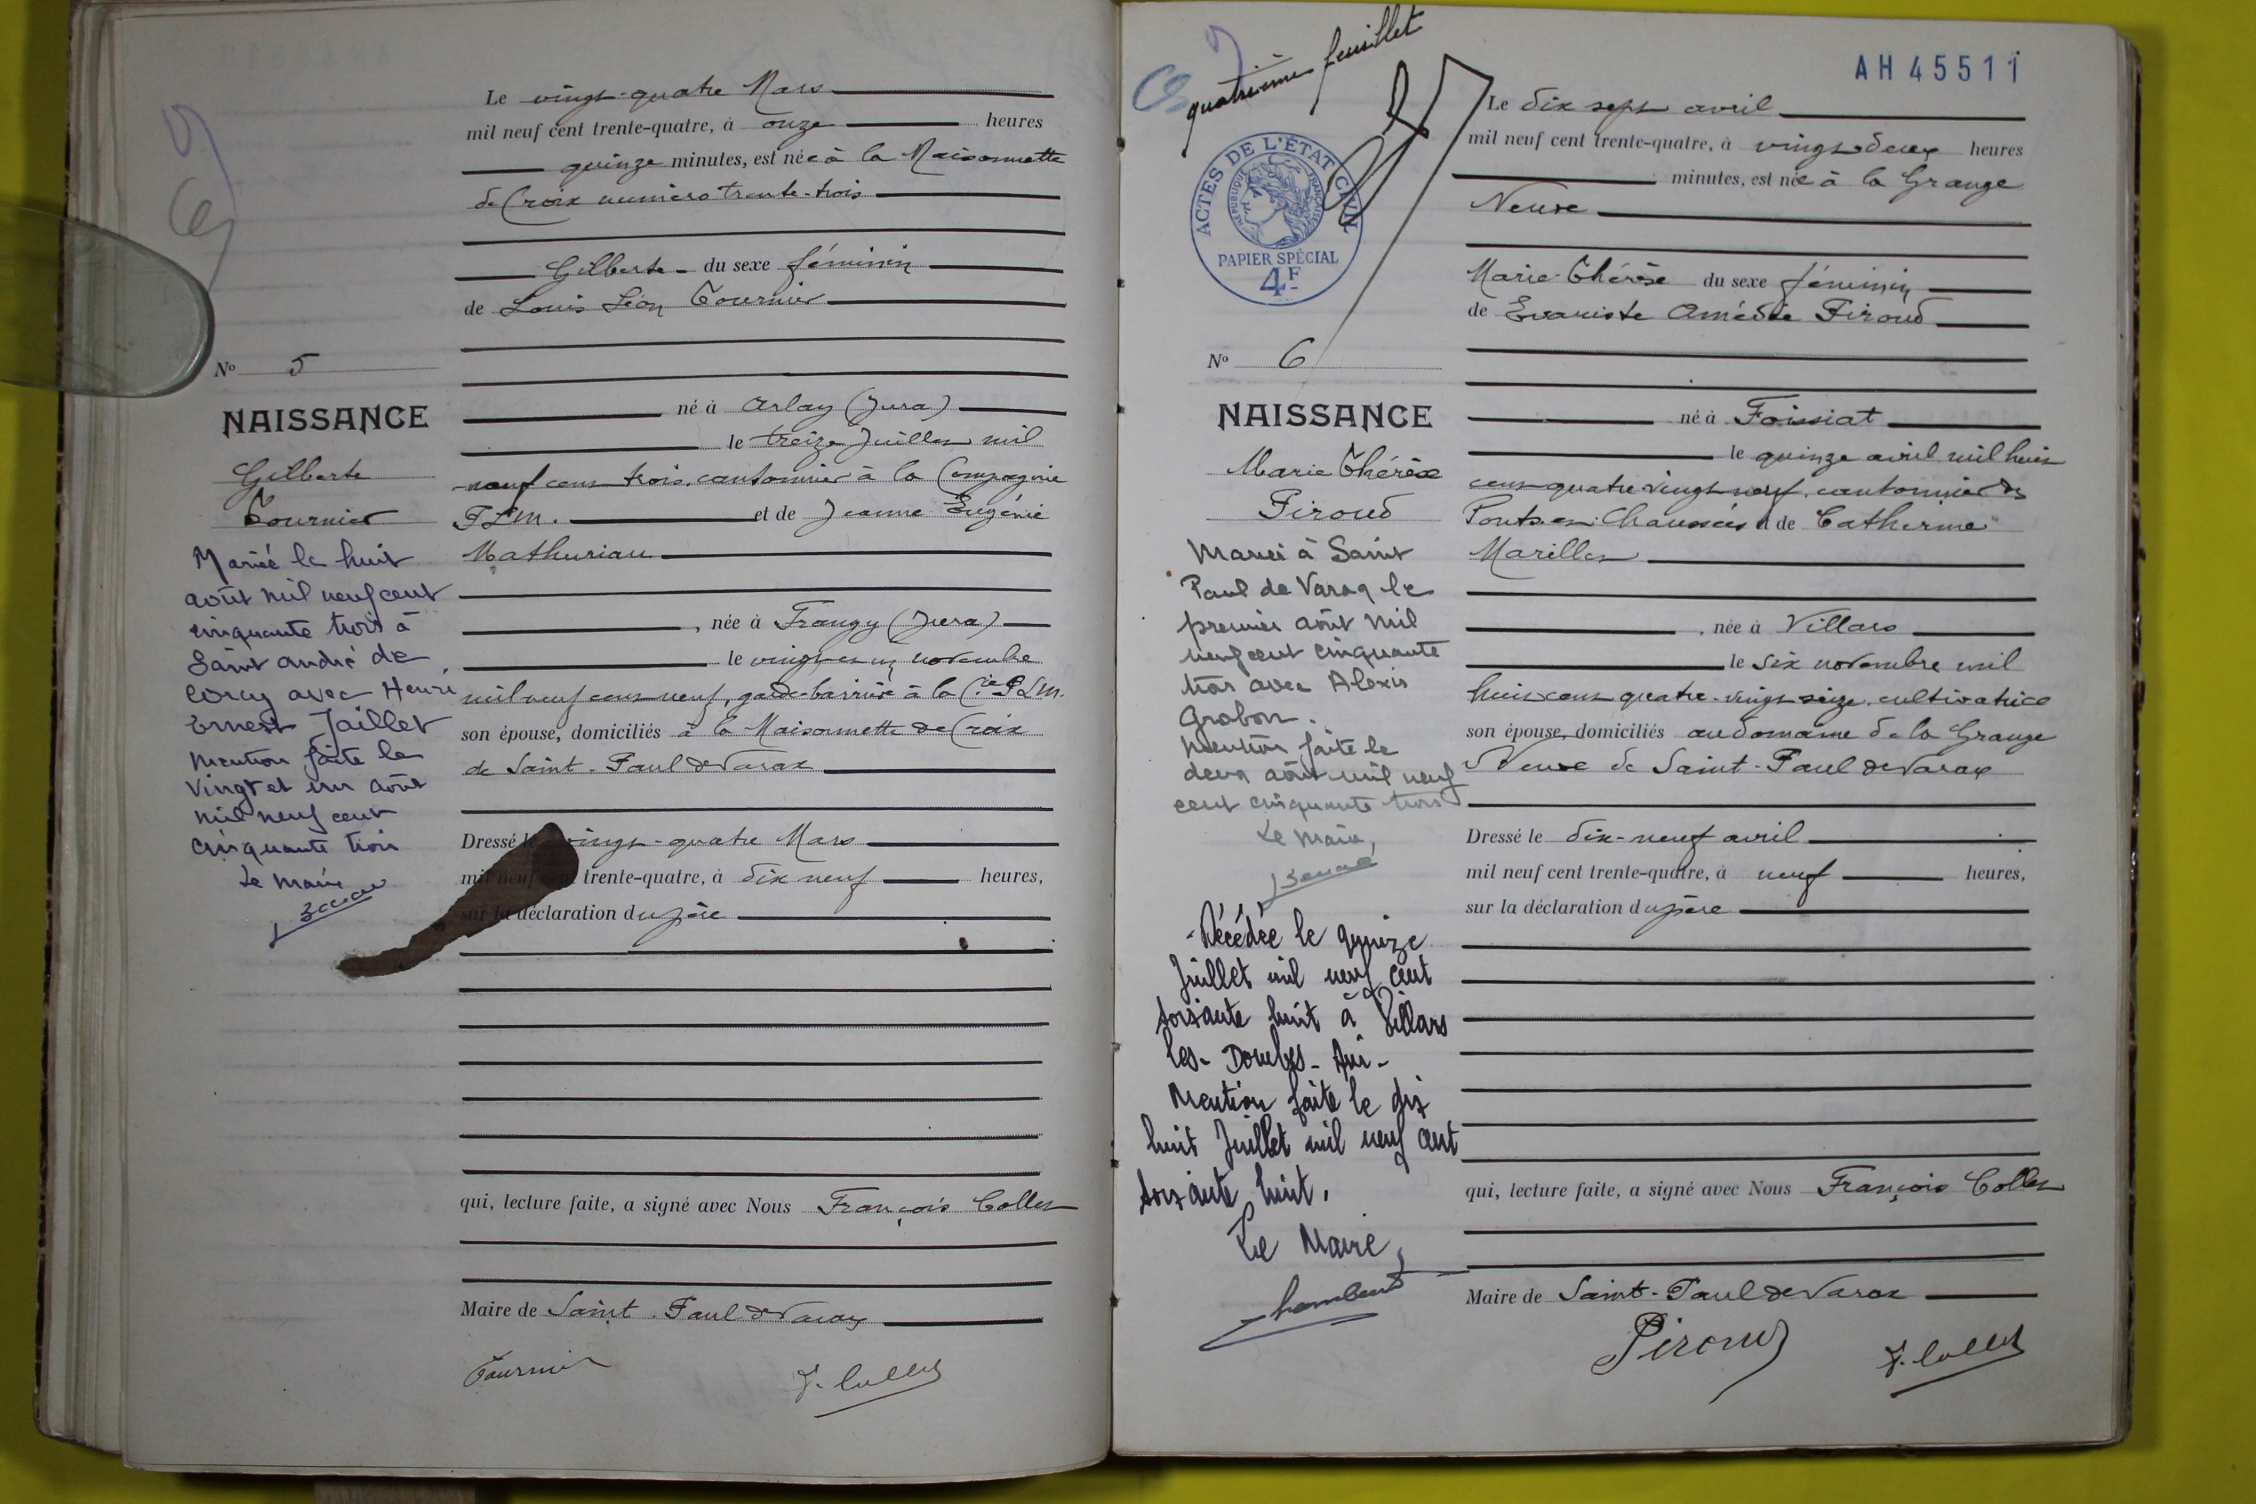 Le vingt-quatre Mars
mil neuf cent trente-quatre, à onze heures
quinze minutes, est née à la Maisonnette
de Croix numéro trente-trois
Gilberte du sexe féminin
de Louis Léon Tournier
No 5
NAISSANCE
Gilberte
Tournier
né à Arlay (Jura)
le treize Juillet mil
neuf cent trois, cantonnier à la Compagnie
PLM. et de Jeanne Eugénie
Mathurian
née à Frangy (Jura)
le vingt et un novembre
mil neuf cent neuf, garde-barrière à la Cie PLM.
son épouse, domiciliés à la Maisonnette de Croix
de Saint-Paul de Varax
Dressé le vingt-quatre Mars
mil neuf cent trente-quatre, à dix neuf heures,
sur la déclaration du père
qui, lecture faite, a signé avec Nous François Collet
Maire de Saint-Paul de Varax
Tournier F. Collet
Mariée le huit
août mil neuf cent
cinquante trois à
Saint andré de
Corcy avec Henri
Ernest Jaillet
Mention faite le
vingt et un août
mil neuf cent
cinquante trois
Le Maire
quatrième feuillet
AH 45511
ACTES DE L'ÉTAT CIVIL
RÉPUBLIQUE FRANÇAISE
PAPIER SPÉCIAL
4F
Le dix sept avril
mil neuf cent trente-quatre, à vingt deux heures
minutes, est née à la Grange
Neuve
Marie-Thérèse du sexe féminin
de Evariste Amédée Piroud
No 6
NAISSANCE
Marie Thérèse
Piroud
né à Foissiat
le quinze avril mil huit
cent quatre-vingt neuf, cantonnier des
Ponts et Chaussées et de Catherine
Marillet
née à Villars
le six novembre mil
huit cent quatre-vingt seize, cultivatrice
son épouse, domiciliés au domaine de la Grange
Neuve de Saint-Paul de Varax
Dressé le dix-neuf avril
mil neuf cent trente-quatre, à neuf heures,
sur la déclaration du père
qui, lecture faite, a signé avec Nous François Collet
Maire de Saint-Paul de Varax
Piroud F. Collet
Mariée à Saint
Paul de Varax le
premier août mil
neuf cent cinquante
trois avec Alexis
Grabon.
Mention faite le
deux août mil neuf
cent cinquante trois
Le Maire,
Décédée le quinze
Juillet mil neuf cent
soixante huit à Villars
les-Dombes-Ain-
Mention faite le dix
huit Juillet mil neuf cent
soixante huit.
Le Maire,